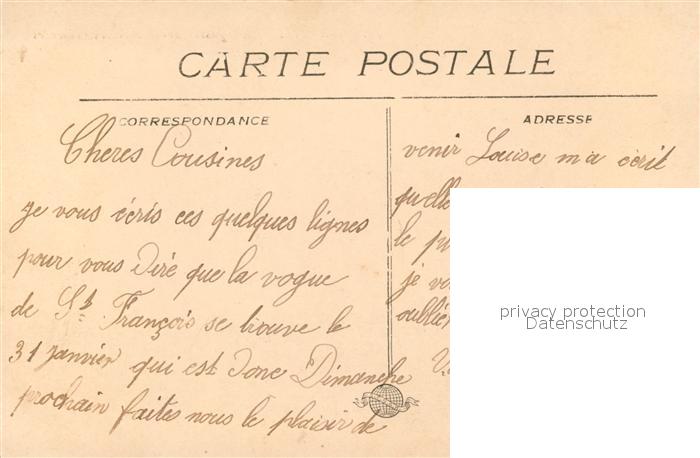 CARTE POSTALE
CORRESPONDANCE
ADRESSE
Cheres Cousines
je vous écris ces quelques lignes
pour vous Dire que la vogue
de St François se trouve le
31 Janvier qui est Donc Dimanche
prochain faites nous le plaisir de
venir Louise m a écrit
qu elle
le
je
oublié
privacy protection
Datenschutz